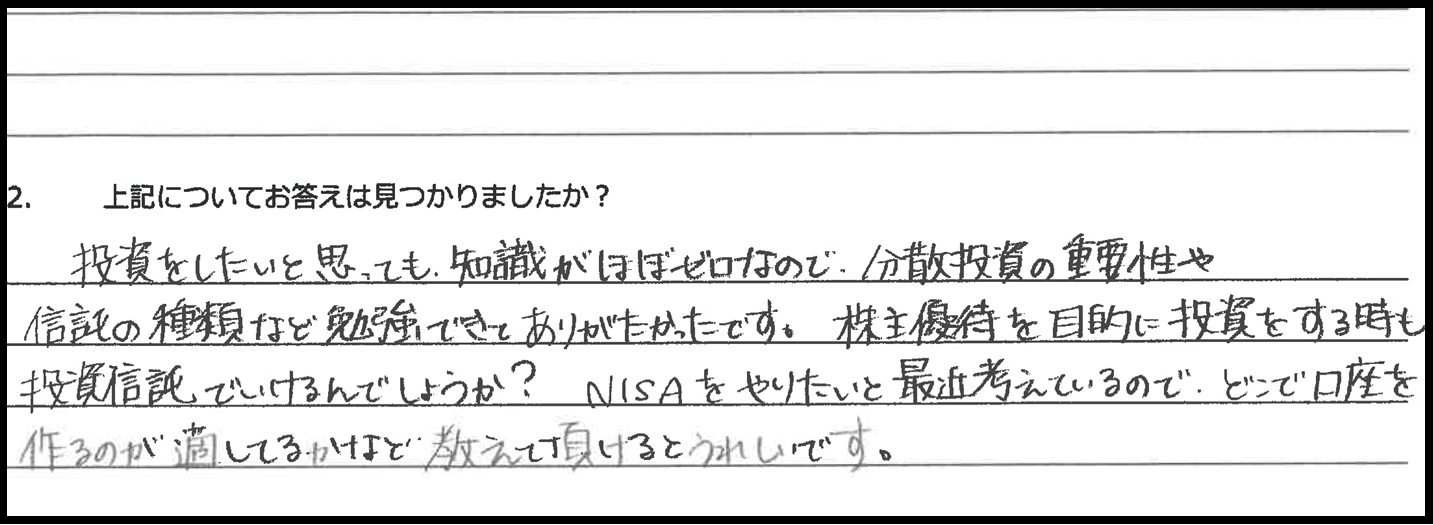 2. 上記についてお答えは見つかりましたか？
投資をしたいと思っても、知識がほぼゼロなので、分散投資の重要性や
信託の種類など勉強できてありがたかったです。株主優待を目的に投資をする時も
投資信託でいけるんでしょうか？ NISAをやりたいと最近考えているので、どこで口座を
作るのが適してるかなど教えて頂けるとうれしいです。